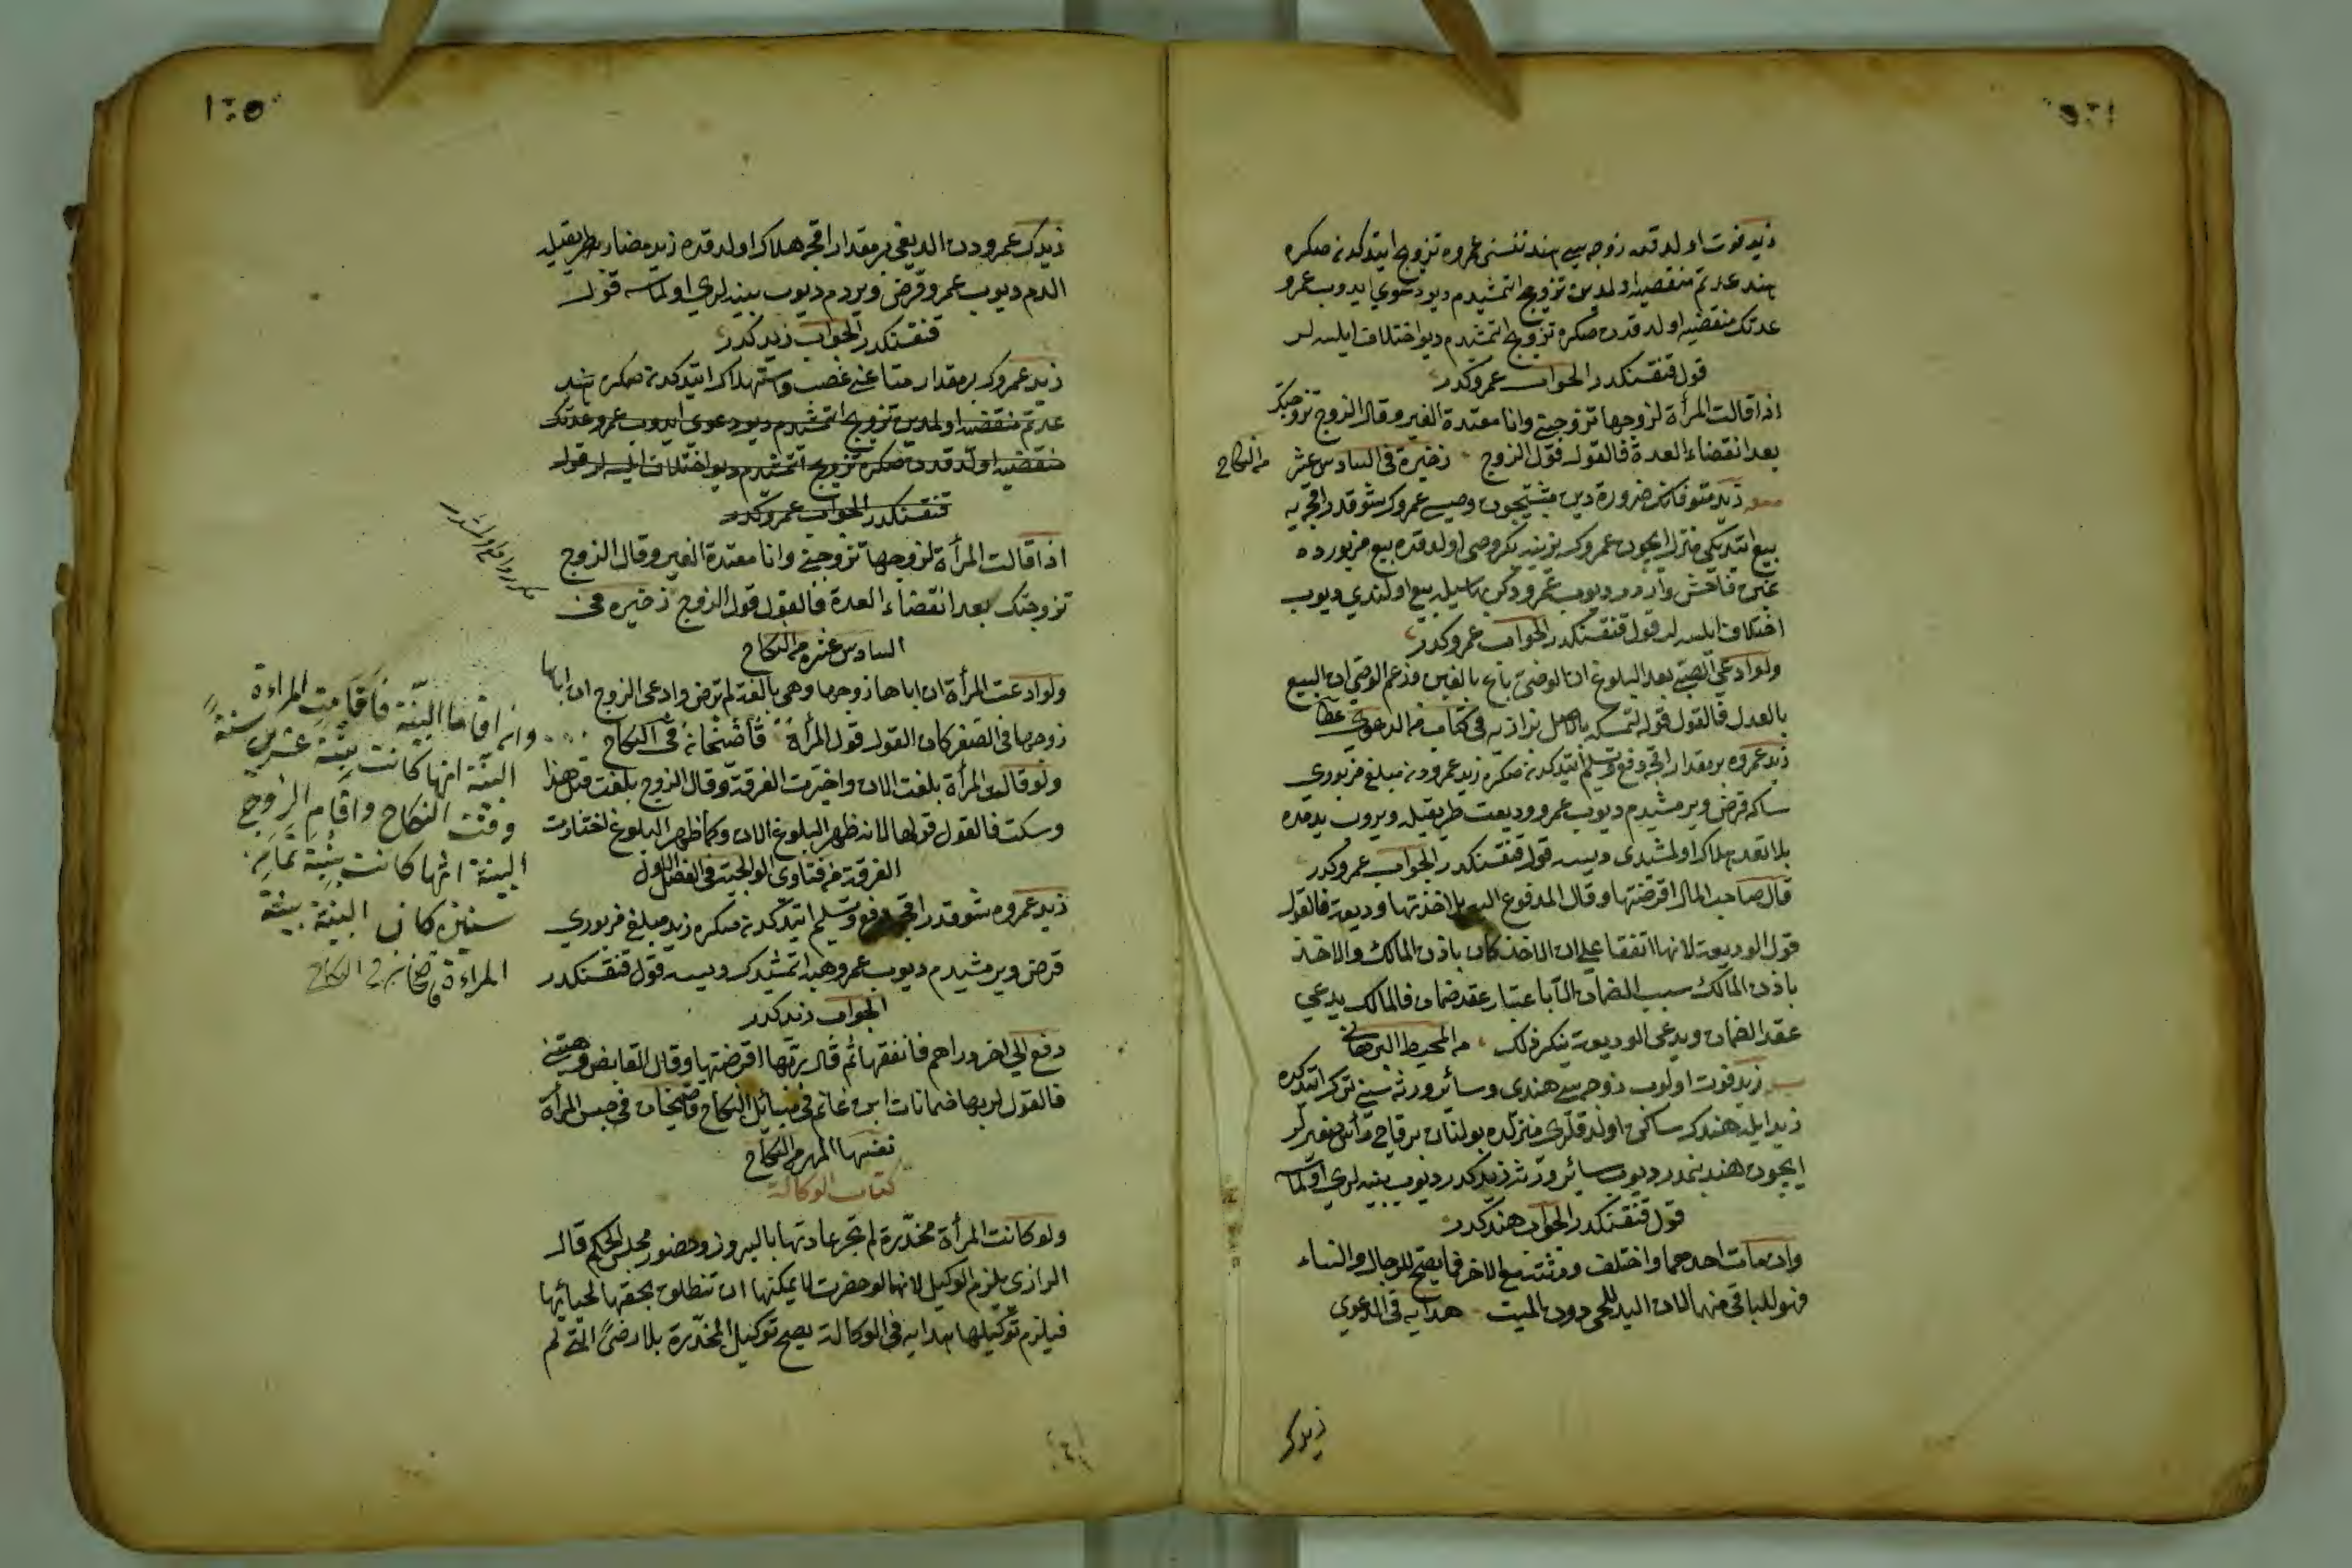 زيد فوت اولدقده زوجه سي هند نفسنى عمروه تزويج ايتدكدنصكره
هند عدتم منقضيه اولمدين تزويج اتمشيدم ديو دعوي ايدوب عمرو
عدتك منقضيه اولدقدن صكره تزويج اتمشيدم ديو اختلاف ايلسه لر
قول قنقسنكدر الجواب عمروكدر
اذا قالت المرأة لزوجها تزوجني وانا معتدة الغير وقال الزوج تزوجتك
بعد انقضاء العدة فالقول قول الزوج ذخيرة فى السادس عشر
من النكاح
زيد متوفانك ضرورة دين مثبتيجون وصيى عمرو بيع
بيع ايتديكى منزل ايچون عمروك وصى اولدقده بيع مزبورده
غبن فاحش واردر ديوب عمرو دخى بيع اولندي ديوب
اختلاف ايلسه لر قول قنقسنكدر الجواب عمروكدر
ولو ادعى الصبى بعد البلوغ ان الوصى باع بالغبن فزعم الوصى ان البيع
بالعدل فالقول قوله لتمسكه بالاصل بزازيه فى كتاب من الدعوى
زيد عمروه بر مقدار اقچه دفع وتسليم ايتدكدنصكره زيد عمرودن مبلغ مزبوري
ساكه قرض ويرمشيدم ديوب عمرو وديعت طريقيله ويروب يدمده
بلاتعد هلاك اولمشيدى ديسه قول قنقسنكدر الجواب عمروكدر
قال صاحب المال اقرضتها وقال المدفوع اليه بل اخذتها وديعة فالقول
قول الوديعة لانهما اتفقا على ان الاخذ كان باذن المالك والاخذ
باذن المالك سبب الضمان الا باعتبار عقد ضمان فالمالك يدعي
عقد الضمان ويدعى الوديعة ينكر ذلك من المحيط البرهاني
زيد فوت اولوب زوجه سي هندى وسائر ورثه سني ترك ايتدكده
زيد ايله هندك ساكن اولدقلرى منزلده بولنان بر قاچ
ايچون هند بنمدر ديوب سائر ورثه زيدكدر ديوب بينه لري اولماسه
قول قنقسنكدر الجواب هندكدر
وان مات احدهما واختلف ورثته مع الاخر فما يصلح للرجال والنساء
فهو للباقى منهما لان اليد للحى دون الميت هدايه فى الدعوي
زيدك
زيدك عمرودن الديغى بر مقدار اقچه هلاك اولدقده زيد مضاربه طريقيله
الدم ديوب عمرو قرض ويردم ديوب بينه لري اولماسه قول
قنقسنكدر الجواب زيدكدر
زيد عمروك بر مقدار متاعنى غصب واستهلاك ايتدكدنصكره هند
عدتم منقضيه اولمدين تزويج اتمشيدم ديو دعوى ايدوب عمرو عدتك
منقضيه اولدقدن صكره تزويج اتمشيدم ديو اختلاف ايلسه لر قول
قنقسنكدر الجواب عمروكدر
اذا قالت المرأة لزوجها تزوجني وانا معتدة الغير وقال الزوج
تزوجتك بعد انقضاء العدة فالقول قول الزوج ذخيره فى
السادس عشر من النكاح
ولو ادعت المرأة ان اباها زوجها وهى بالغة لم ترض وادعى الزوج ان اباها
زوجها فى الصغر كان القول قول المرأة قاضيخان فى النكاح
ولو قالت المرأة بلغت الان واخترت الفرقة وقال الزوج بلغت قبل هذا
وسكت فالقول قولها لانه ظهر البلوغ الان وكما ظهر البلوغ اختارت
الفرقة من فتاوى الولوالجية فى الفصل الاول
زيد عمروه شو قدر اقچه دفع وتسليم ايتدكدنصكره زيد مبلغ مزبوري
قرض ويرمشيدم ديوب عمرو هبه اتمشيدك ديسه قول قنقسنكدر
الجواب زيدكدر
دفع الى اخر دراهم فانفقها ثم قال ربها اقرضتها وقال القابض وهبتني
فالقول لربها ضمانات ابن غانم فى مسائل النكاح قاضيخان فى حبس المرأة
نفسها المهر من النكاح
كتاب الوكالة
ولو كانت المرأة مخدرة لم تجر عادتها بالبروز وحضور مجلس الحكم قال
الرازى يلزم التوكيل لانها لو حضرت لا يمكنها ان تنطلق بحقها لحيائها
فيلزم توكيلها هدايه فى الوكالة يصح توكيل المخدرة بلا رضى التى لم
وان اقاما البينة فاقامت المراءة
البينة انها كانت بنت عشرين سنة
وقت النكاح واقام الزوج
البينة انها كانت بنت ثمان
سنين كان البينة بينة
المراءة قاضيخان فى النكاح